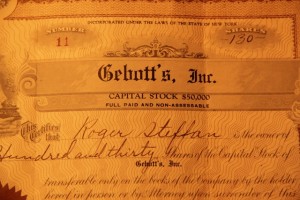 INCORPORATED UNDER THE LAWS OF THE STATE OF NEW YORK
NUMBER SHARES
11 130
Gebott's, Inc.
CAPITAL STOCK $50,000
FULL PAID AND NON-ASSESSABLE
This Certifies that Roger Steffan is the owner of
Hundred and thirty Shares of the Capital Stock of
Gebott's, Inc.
transferable only on the books of the Company by the holder
hereof in person or by Attorney upon surrender of this